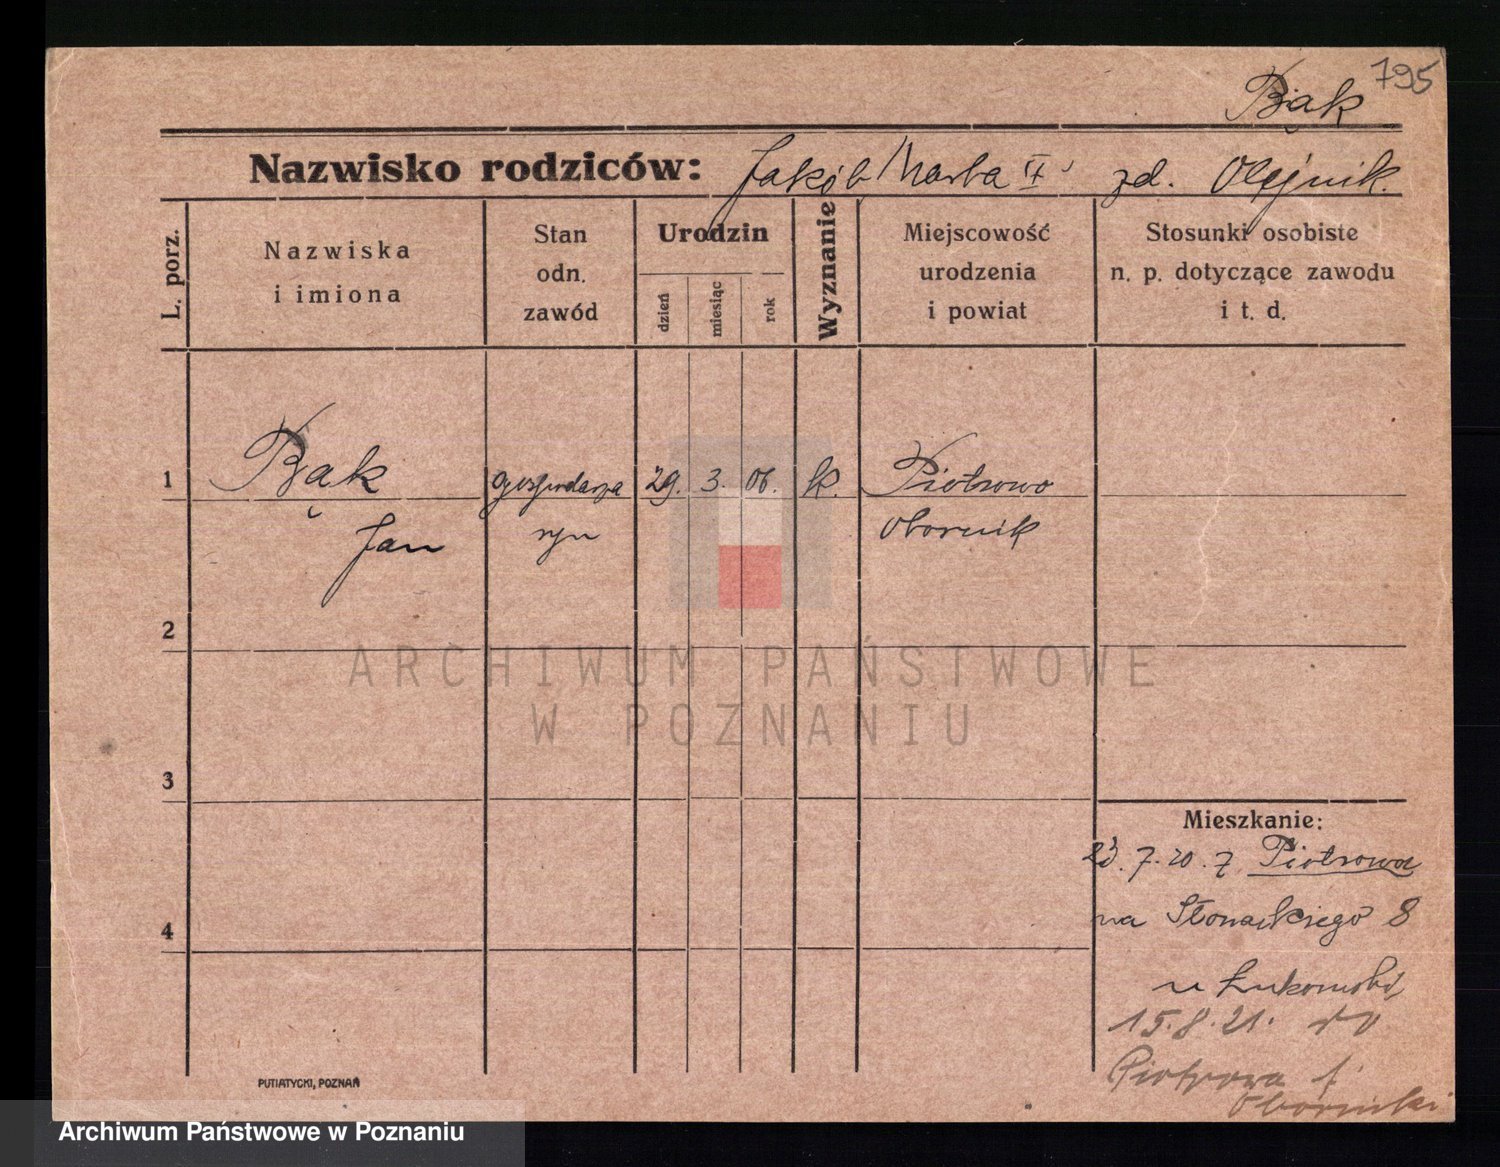 795
Bąk
Nazwisko rodziców: Jakób Marta zd. Olejnik.
L. porz.
Nazwiska
i imiona
Stan
odn.
zawód
Urodzin
dzień
miesiąc
rok
Wyznanie
Miejscowość
urodzenia
i powiat
Stosunki osobiste
n. p. dotyczące zawodu
i t. d.
1 Bąk gospodarza 29. 3. 06. k. Piotrowo
Jan syn Obornik
2
ARCHIWUM PAŃSTWOWE
W POZNANIU
3
Mieszkanie:
23. 7. 20. z Piotrowa
4
na Słonawskiego 8
u Łukomski
15. 8. 21. do
Piotrowa
Oborniki
PUTIATYCKI, POZNAŃ
Archiwum Państwowe w Poznaniu